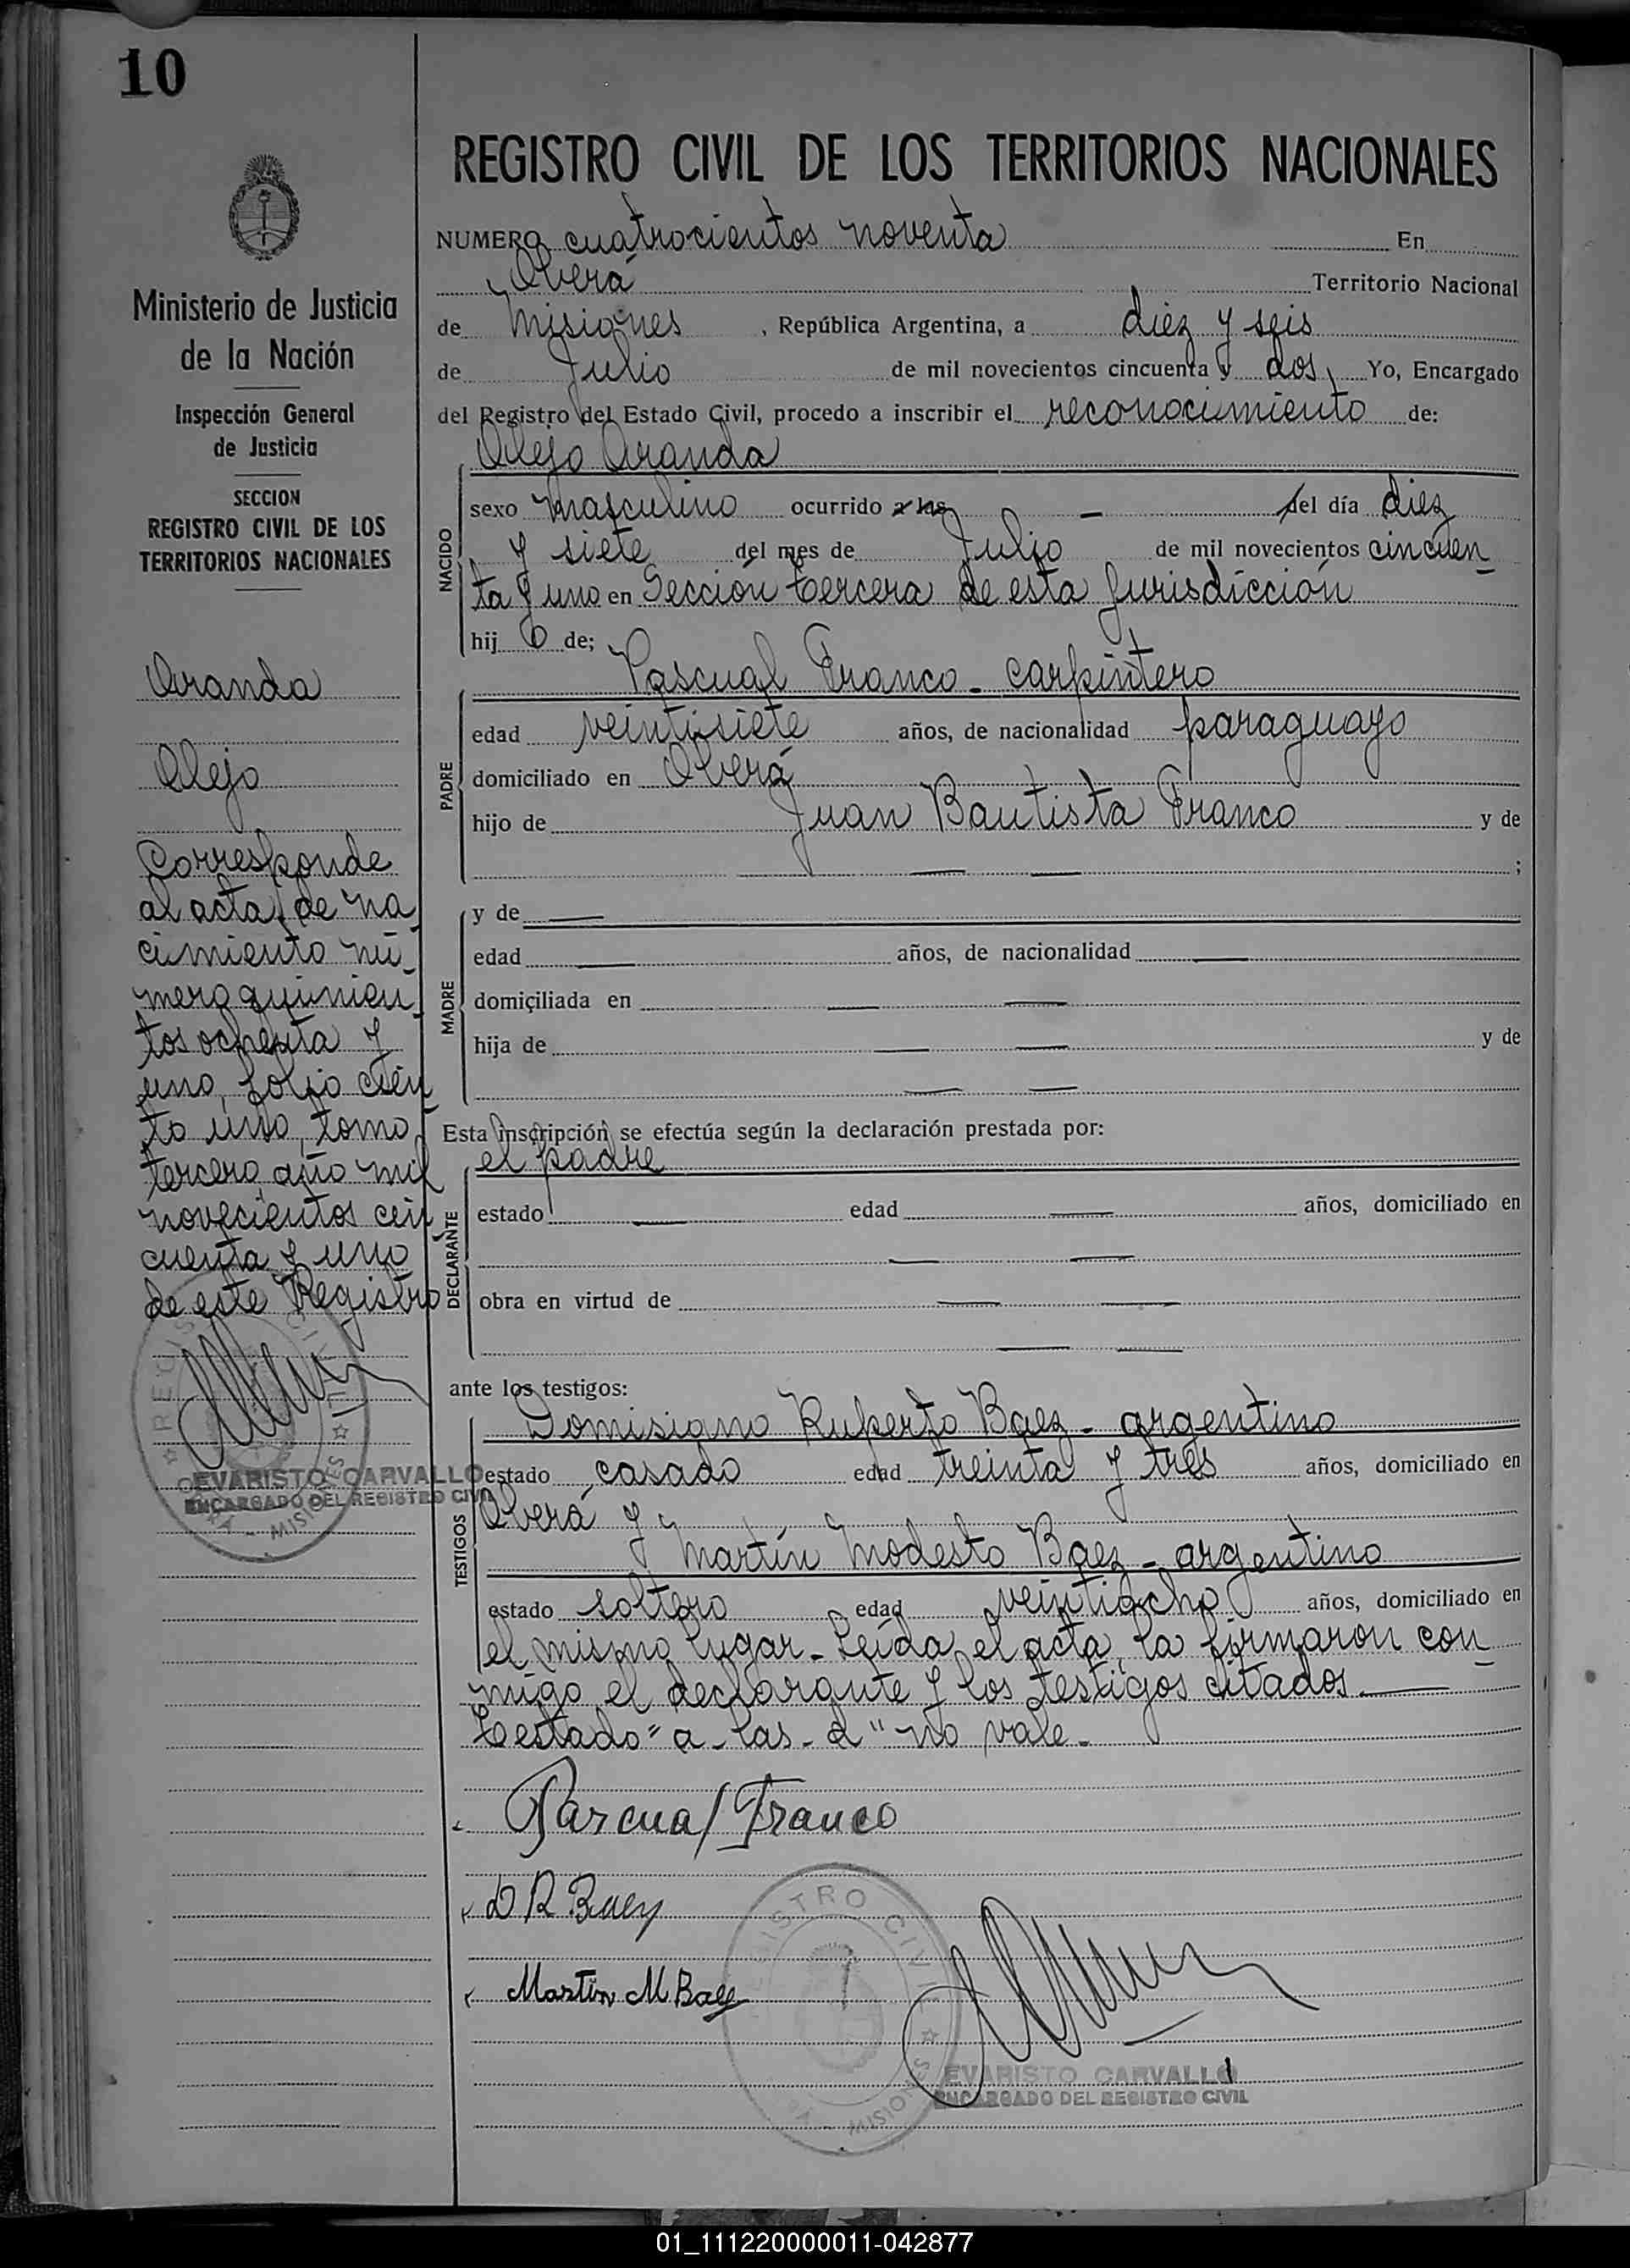 10
Ministerio de Justicia
de la Nación
Inspección General
de Justicia
SECCION
REGISTRO CIVIL DE LOS
TERRITORIOS NACIONALES
Aranda
Alejo
Corresponde
al acta de na_
cimiento nú_
mero quinien_
tos ochenta y
uno, folio cien_
to uno, tomo
tercero, año mil
novecientos cin_
cuenta y uno
de este Registro
EVARISTO CARVALLO
ENCARGADO DEL REGISTRO CIVIL
REGISTRO CIVIL DE LOS TERRITORIOS NACIONALES
NUMERO cuatrocientos noventa En
Oberá Territorio Nacional
de Misiones, República Argentina, a diez y seis
de Julio de mil novecientos cincuenta y dos, Yo, Encargado
del Registro del Estado Civil, procedo a inscribir el reconocimiento de:
Alejo Aranda
NACIDO
sexo masculino ocurrido a las — del día diez
y siete del mes de Julio de mil novecientos cincuen_
ta y uno en Sección tercera de esta Jurisdicción
hij o de;
Pascual Franco - carpintero
PADRE
edad veintisiete años, de nacionalidad paraguayo
domiciliado en Oberá
hijo de Juan Bautista Franco y de
— — ;
MADRE
y de —
edad — años, de nacionalidad —
domiciliada en — —
hija de — — y de
— —
Esta inscripción se efectúa según la declaración prestada por:
el padre
DECLARANTE
estado — edad — años, domiciliado en
— —
obra en virtud de — —
— —
ante los testigos:
TESTIGOS
Domisiano Ruperto Baez - argentino
estado casado edad treinta y tres años, domiciliado en
Oberá y
Martín Modesto Baez - argentino
estado soltero edad veintiocho años, domiciliado en
el mismo lugar - Leída el acta, la firmaron con_
migo el declarante y los testigos citados —
Testado "a - las - d" no vale -
Pascual Franco
D R Baez
Martin M Baez
REGISTRO CIVIL
MISIONES
EVARISTO CARVALLO
ENCARGADO DEL REGISTRO CIVIL
01_111220000011-042877